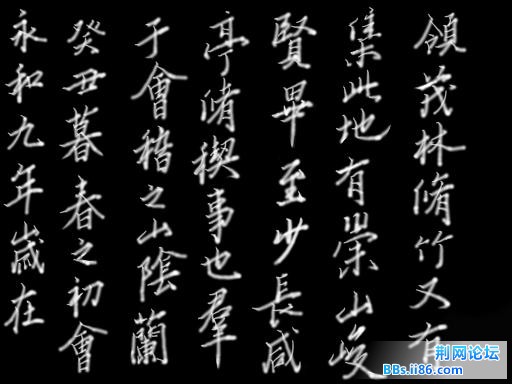 永和九年歲在
癸丑暮春之初會
于會稽之山陰蘭
亭脩禊事也羣
賢畢至少長咸
集此地有崇山峻
領茂林脩竹又有
荆网论坛
BBs.ii86.com